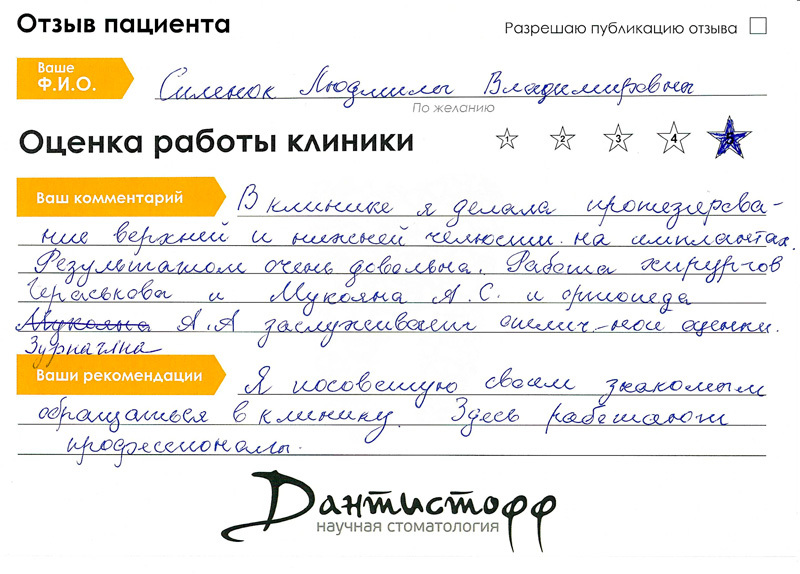 Отзыв пациента
Разрешаю публикацию отзыва
Ваше
Ф.И.О.
Силенок Людмилы Владимировны
По желанию
Оценка работы клиники
1 2 3 4
Ваш комментарий
В клинике я делала протезирова-
ние верхней и нижней челюсти на имплантах.
Результатом очень довольна. Работа хирургов
Гераськова и Мукояна А.С. и ортопеда
Мукояна А.А заслуживает отлич-ной оценки.
Зурначяна
Ваши рекомендации
Я посоветую своим знакомым
обращаться в клинику. Здесь работают
профессионалы.
Дантистофф
научная стоматология